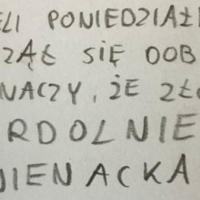 ELI PONIEDZIAŁ
ZĄŁ SIĘ DOB
NACZY, ŻE ZŁO
RDOLNIE
NIENACKA